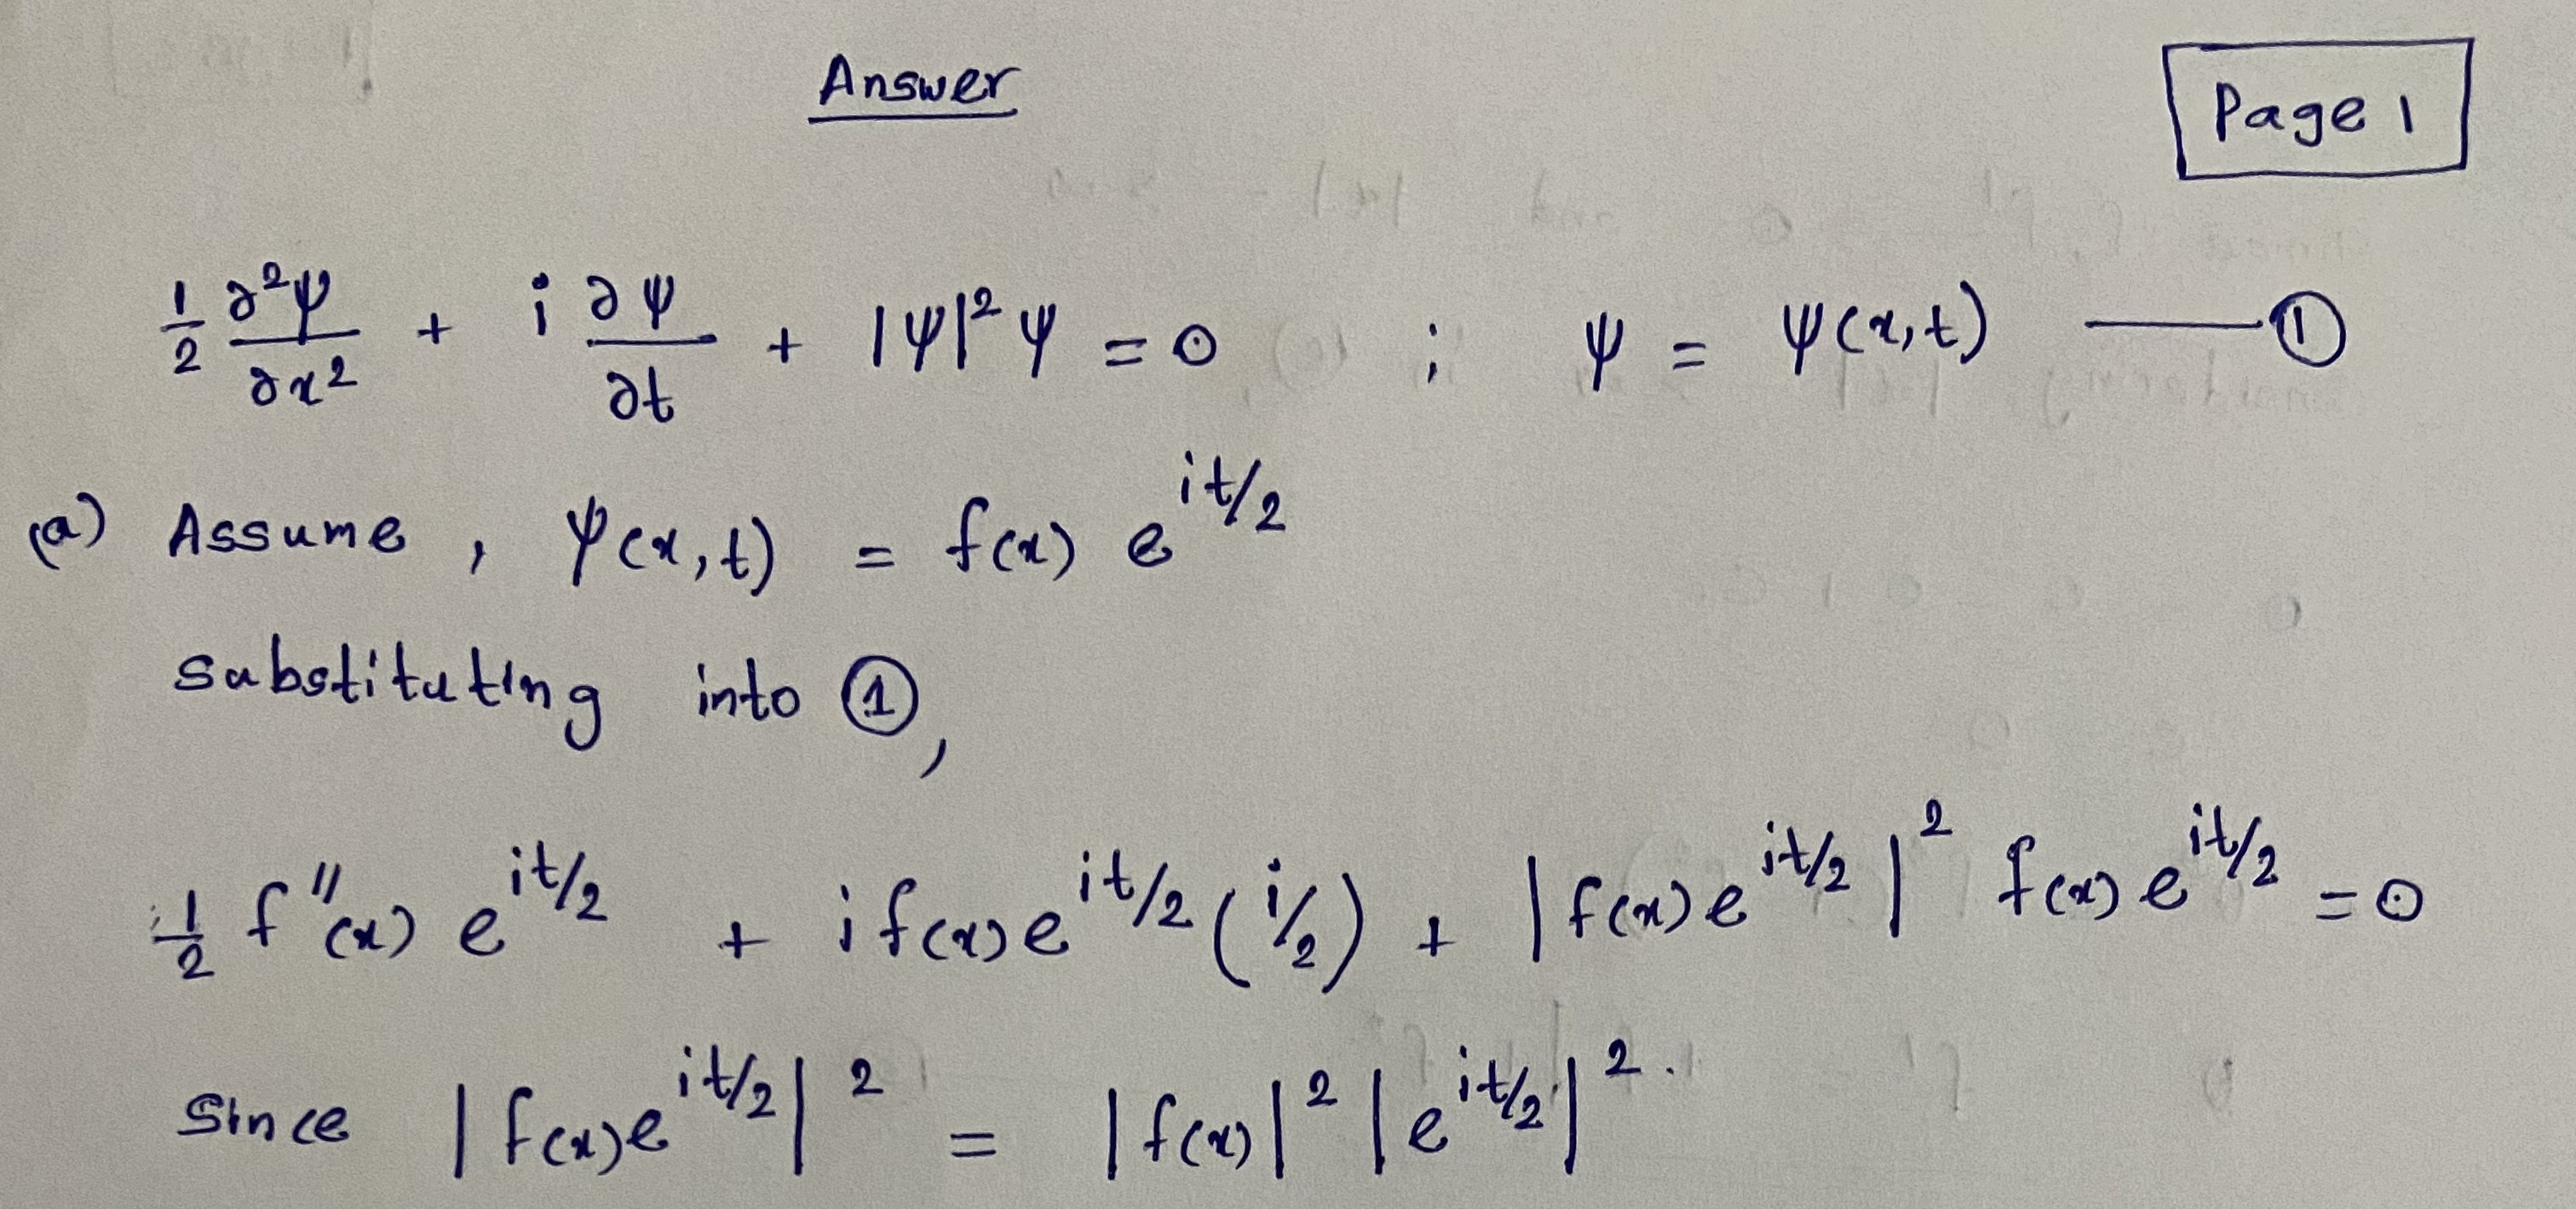 Answer
Page 1
1/2 ∂²ψ/∂x² + i ∂ψ/∂t + |ψ|² ψ = 0 ; ψ = ψ(x,t) —— ①
(a) Assume, ψ(x,t) = f(x) e^{it/2}
substituting into ①,
1/2 f''(x) e^{it/2} + i f(x) e^{it/2} (i/2) + |f(x) e^{it/2}|² f(x) e^{it/2} = 0
Since |f(x) e^{it/2}|² = |f(x)|² |e^{it/2}|².